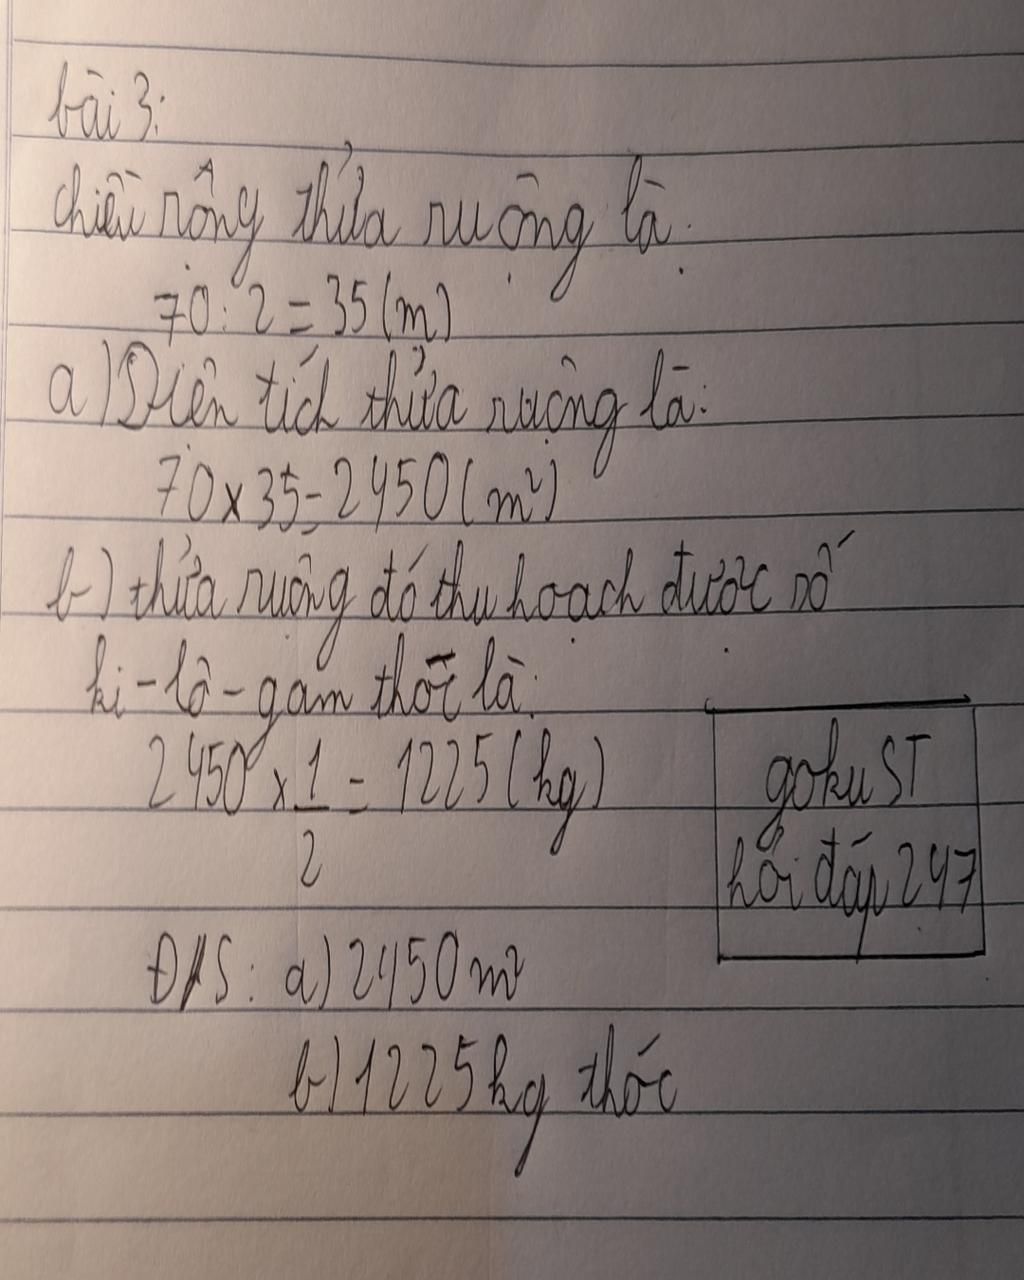 bài 3:
chiều rộng thửa ruộng là:
70 : 2 = 35 (m)
a) Diện tích thửa ruộng là:
70 x 35 = 2450 (m²)
b) thửa ruộng đó thu hoạch được số
ki-lô-gam thóc là:
2450 x 1/2 = 1225 (kg)
goku ST
hỏi đáp 247
Đ/S: a) 2450 m²
b) 1225 kg thóc